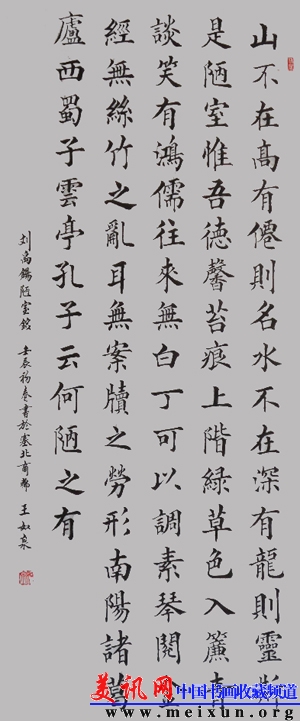 山不在高有僊則名水不在深有龍則靈斯
是陋室惟吾徳馨苔痕上階綠草色入簾青
談笑有鴻儒往來無白丁可以調素琴閱金
經無絲竹之亂耳無案牘之勞形南陽諸葛
廬西蜀子雲亭孔子云何陋之有
刘禹錫陋室銘 壬辰初春書於塞北 王如泉
美讯网 中国书画收藏频道
www.meixun.org